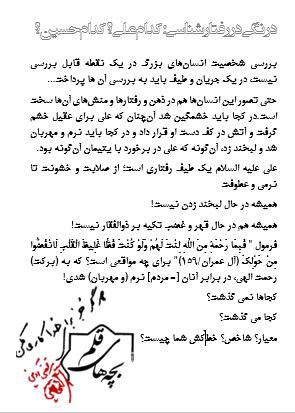 درنگی در رفتارشناسی: کدام علی؟ کدام حسین؟
بررسی شخصیت انسان‌های بزرگ در یک نقطه قابل بررسی
نیست، در یک جریان و طیف باید به بررسی آن ها پرداخت...
حتی تصور این انسان‌ها هم در ذهن و رفتارها و منش‌های آن‌ها سخت
است. در کجا باید خشمگین شد آن‌چنان که علی برای عقیل خشم
گرفت و آتش در کف دست او قرار داد و در کجا باید نرم و مهربان
شد و لبخند زد، آن‌گونه که علی در برخورد با یتیمان آن‌گونه بود.
علی علیه السلام یک طیف رفتاری است؛ از صلابت و خشونت تا
نرمی و عطوفت
همیشه در حال لبخند زدن نیست!
همیشه هم در حال قهر و غضب تکیه بر ذوالفقار نیست!
فرمول " فَبِمَا رَحْمَةٍ مِنَ اللَّهِ لِنْتَ لَهُمْ وَلَوْ كُنْتَ فَظًّا غَلِيظَ الْقَلْبِ لَانْفَضُّوا
مِنْ حَوْلِكَ (آل عمران/۱۵۹)" برای چه مواقعی است؟ که به (برکت)
رحمت الهی، در برابر آنان [=مردم] نرم (و مهربان) شدی!
کجاها نمی گذشت؟
کجا می گذشت؟
معیار؟ شاخص؟ خط‌کش شما چیست؟
بچه‌های قلم